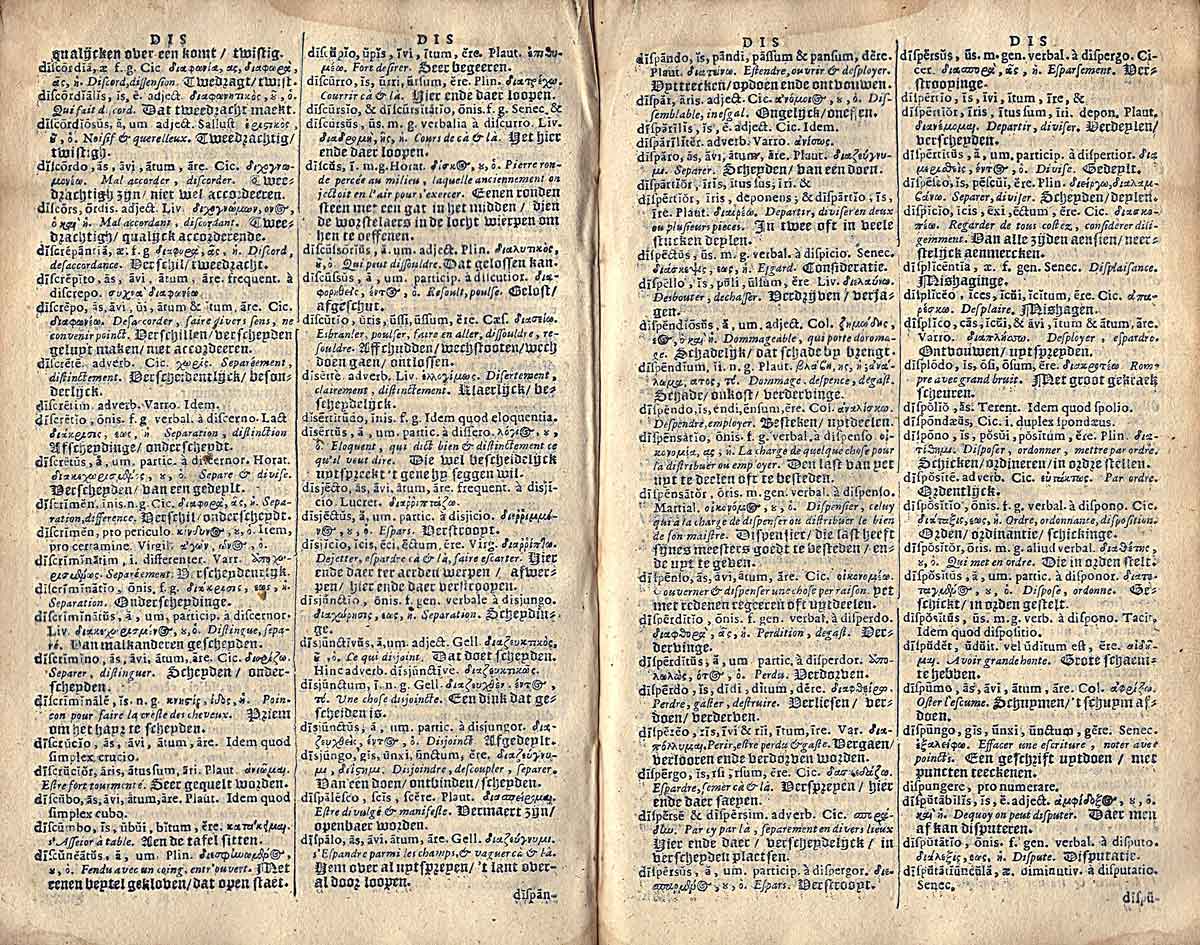 DIS
qualijcken over een komt / twistig.
dīscŏrdĭă, æ f. g. Cic. διαφωνία, ας, διαφορὰ,
ᾶς, ἡ. Discord, dissension. Twedragt / twist.
dīscŏrdĭālĭs, ĭs, ĕ. adject.
Qui fait discord. Dat twedracht maeckt.
dīscŏrdĭōsŭs, ă, um adject. Sallust
Noisif & querelleux. Tweedrachtig /
twistigh.
dīscŏrdo, ās, āvi, ātum, āre. Cic.
Mal accorder, discorder. Twee-
drachtigh zijn / niet wel accorderen.
dīscŏrs, ŏrdis. adject. Liv.
Mal accordant, discordant. Twee-
drachtigh / qualijck accorderende.
dīscrĕpāntĭă, æ. f. g. διαφορὰ, ᾶς, ἡ. Discord,
desaccordance. Verschil / tweedracht.
dīscrĕpĭto, ās, āvi, ātum, āre. frequent. à
discrepo.
dīscrĕpo, ās, āvi, ŭi, ātum & ĭtum, āre. Cic.
διαφωνέω. Desaccorder, faire divers sens, ne
convenir poinct. Verschillen / verscheyden
geluyt maken / niet accorderen.
dīscrētē. adverb. Cic. χωρὶς. Separément,
distinctement. Verscheidentlijck / beson-
derlijck.
dīscrētim. adverb. Varro. Idem.
dīscrētĭo, ōnis. f. g. verbal. à discerno. Lact
διάκρισις, εως, ἡ. Separation, distinction
Afscheydinge / onderscheydt.
dīscrētŭs, ă, um. partic. à discernor. Horat.
Separé & divisé.
Verscheyden / van een gedeplt.
dīscrīmĕn, ĭnis. n. g. Cic. διαφορὰ, ᾶς, ἡ. Sepa-
ration, difference. Verschil / onderscheydt.
dīscrīmĕn, pro periculo. κίνδυνος, ου, ὁ. Item,
pro certamine. Virgil. ἀγὼν, ῶνος, ὁ.
dīscrīmĭnātim, i. differenter. Varr.
Separément. Verscheydentlijck.
dīscrīmĭnātĭo, ōnis, f. g. διάκρισις, εως, ἡ.
Separation. Onderscheydinge.
dīscrīmĭnātŭs, ă, um, particip. à discernor
Liv. Distingué, sepa-
ré. Van malkanderen gescheyden.
dīscrīmĭno, ās, āvi, ātum, āre. Cic. διορίζω.
Separer, distinguer. Scheyden / onder-
scheyden.
dīscrīmĭnālĕ, ĭs. n. g. Poin-
con pour faire la creste des cheveux. Priem
om het hayr te scheyden.
dīscrŭcĭo, ās, āvi, ātum, āre. Idem quod
simplex crucio.
dīscrŭcĭŏr, āris, ātus sum, āri. Plaut. ἀνιῶμαι.
Estre fort tourmenté. Seer gequelt worden.
dīscŭbo, ās, āvi, ātum, āre. Plaut. Idem quod
simplex cubo.
dīscūmbo, ĭs, ŭbŭi, bĭtum, ĕre. κατάκειμαι.
s'Asseior à table. Aen de tafel sitten.
dīscŭnĕātŭs, ă, um. Plin.
Fendu avec un coing, entr'ouvert. Met
eenen beytel gekloven / dat open staet.
DIS
dīscŭpĭo, ŭpĭs, īvi, ītum, ĕre. Plaut. ἐπιθυ-
μέω. Fort desirer. Seer begeeren.
dīscūrro, ĭs, ŭrri, ŭrsum, ĕre. Plin. διατρέχω.
Courrir çà & là. Hier ende daer loopen.
dīscūrsĭo, & dīscūrsĭtātĭo, ōnis. f. g. Senec. &
dīscūrsŭs, ūs. m. g. verbalia à discurro. Liv.
διαδρομὴ, ῆς, ἡ. Cours de çà & là. Het hier
ende daer loopen.
dīscŭs, ĭ. m. g. Horat. δίσκος, ου, ὁ. Pierre ron-
de percée au milieu, laquelle anciennement on
jectoit en l'air pour s'exercer. Eenen ronden
steen met een gat in het midden / dien
de worstelaers in de locht wierpen om
hen te oeffenen.
dīscūssōrĭŭs, ă, um, adject. Plin. διαλυτικὸς,
οῦ, ὁ. Qui peut dissouldre. Dat gelossen kan.
dīscūssŭs, ă, um, particip. à discutior.
Resoult, poulsé. Gelost /
afgeschut.
dīscŭtĭo, ŭtis, ŭssi, ŭssum, ĕre. Cæs. διασείω.
Esbranler, poulser, faire en aller, dissouldre, re-
souldre. Affchudden / wechstooten / wech
doen gaen / ontlossen.
dīsērtē. adverb. Liv. ἐλλογίμως. Disertement,
clairement, distinctement. Klaerlijck / be-
scheydelijck.
dīsērtĭtūdo, ĭnis. f. g. Idem quod eloquentia.
dīsērtŭs, ă, um, particip. à dissero. λόγιος, ου,
ὁ. Eloquent, qui dict bien & distinctement ce
qu'il veut dire. Die wel bescheidelijck
uytspreekt 't gene hy seggen wil.
dīsjĕcto, ās, āvi, ātum, āre. frequent. à disji-
cio. Lucret.
dīsjĕctŭs, ă, um, particip. à disjicio.
Espars. Verstroopt.
dīsjĭcĭo, ĭcis, ēci, ĕctum, ĕre. Virg. διαρρίπτω.
Dejetter, espardre çà & là, faire escarter. Hier
ende daer ter aerden werpen / afwer-
pen / hier ende daer verstroopen.
dīsjūnctĭo, ōnis. f. gen. verbale à disjungo.
διαχώρησις, εως, ἡ. Separation. Scheydin-
ge.
dīsjūnctīvŭs, ă, um, adject. Gell. διαζευκτικὸς,
οῦ, ὁ. Ce qui disjoint. Dat doet scheyden.
Hinc adverb. disjunctivè. διαζευκτικῶς.
dīsjūnctum, ĭ. n. g. Gell.
Une chose disjoincte. Een dinck dat ge-
scheiden is.
dīsjūnctŭs, ă, um, partic. à disjungor.
Disjoinct. Afgedeplt.
dīsjūngo, gĭs, ūnxi, ūnctum, ĕre. διαζεύγνυ-
μι. Disjoindre, descoupler, separer.
Van een doen / ontbinden / scheyden.
dīspālēsco, scis, scĕre. Plaut.
Estre divulgé & manifesté. Vermaert zijn /
openbaer worden.
dīspālo, ās, āvi, ātum, āre. Gell.
s'Espandre parmi les champs, & vaguer çà & là.
Hem over al uytspreyen / 't lant over-
al door loopen.
dīspān-
DIS
dīspāndo, ĭs, pāndi, pāssum & pansum, dĕre.
Plaut. διατείνω. Estendre, ouvrir & desployer.
Uyttrecken / opdoen ende ontvouwen.
dīspăr, ăris. adject. Cic. ἀνόμοιος, ου, ὁ. Dis-
semblable, inesgal. Ongelijck / oneffen.
dīspărĭlĭs, ĭs, ĕ. adject. Cic. Idem.
dīspărĭlĭtĕr. adverb. Varro. ἀνίσως.
dīspăro, ās, āvi, ātum, āre. Plaut. διαζεύγνυ-
μι. Separer. Scheyden / van een doen.
dīspĕrtĭŏr, īris, ītus sus, īri. &
dīspĕrtĭŏr, īris, deponens; & dīspĕrtĭo, īs,
īre. Plaut. διαιρέω. Departir, diviser en deux
ou plusieurs pieces. In twee oft in veele
stucken deylen.
dīspĕctŭs, ūs. m. gen. verbal. à dispicio. Senec.
διάσκεψις, εως, ἡ. Esgard. Consideratie.
dīspĕllo, ĭs, pŭli, ūlsum, ĕre. Liv. διελαύνω.
Desbouter, dechasser. Verdrijven / verja-
gen.
dīspēndĭōsŭs, ă, um, adject. Col. ζημιώδης,
Dommageable, qui porte domma-
ge. Schadelijk / dat schade by brengt.
dīspēndĭum, ĭi. n. g. Plaut. βλάβη, ης, ἡ,
Dommage, despence, degast.
Schade / onkost / verdervinge.
dīspēndo, ĭs, ēndi, ēnsum, ĕre. Col. ἀναλίσκω.
Despendre, employer. Besteken / uytdeelen.
dīspēnsātĭo, ōnis. f. g. verbal. à dispenso οἰ-
κονομία, ας, ἡ. La charge de quelque chose pour
la distribuer ou employer. Den last van yet
uyt te deelen oft te besteden.
dīspēnsātŏr, ōris. m. gen. verbal. à dispenso.
Martial. οἰκονόμος, ου, ὁ. Dispensier, celuy
qui a la charge de dispenser ou distribuer le bien
de son maistre. Dispensier / die last heeft
sijnes meesters goedt te besteden / en-
de uyt te geven.
dīspēnso, ās, āvi, ātum, āre. Cic. οἰκονομέω.
Gouverner & dispenser une chose per raison. Yet
met redenen regeeren oft uytdeelen.
dīspērdĭtĭo, ōnis. f. gen. verbal. à disperdo.
διαφθορὰ, ᾶς, ἡ. Perdition, degast. Ver-
dervinge.
dīspērdĭtŭs, ă, um partic. à disperdor.
Perdu. Verdorven.
dīspērdo, ĭs, dĭdi, dĭtum, dĕre. διαφθείρω.
Perdre, gaster, destruire. Verliesen / ver-
doen / verderven.
dīspĕrĕo, rĭs, īvi & rĭi, ĭtum, īre. Var.
Perir, estre perdu & gasté. Vergaen /
verlooren ende verdorven worden.
dīspērgo, ĭs, rsi, rsum, ĕre. Cic.
Espardre, semer çà & là. Verspreyen / hier
ende daer saeyen.
dīspērsē & dīspērsim. adverb. Cic.
Par cy par là, separement en divers lieux
Hier ende daer / verscheydelijck / in
verscheyden plaetsen.
dīspērsŭs, ă, um, particip. à dispergor.
Espars. Verstroopt.
DIS
dīspērsŭs, ūs, m. gen. verbal. à dispergo. Ci-
cer. διασπορὰ, ᾶς, ἡ. Esparsement. Ver-
stroopinge.
dīspērtĭo, īs, īvi, ītum, īre, &
dīspērtĭŏr, īris, ītus sum, īri. depon. Plaut.
Departir, diviser. Verdeylen /
verscheyden.
dīspērtītŭs, ă, um, particip. à dispertior.
Divisé. Gedeplt.
dīspēsco, ĭs, pēscŭi, ĕre. Plin.
Separer, diviser. Scheyden / deylen.
dīspĭcĭo, ĭcis, ēxi, ēctum, ĕre. Cic.
Regarder de tous costez, considerer dili-
gemment. Van alle zijden aensien / neer-
stelijck aenmercken.
dīsplĭcēntĭă, æ. f. gen. Senec. Displaisance.
Mishaginge.
dīsplĭcĕo, ĭces, ĭcŭi, ĭcĭtum, ēre. Cic. ἀπα-
ρέσκω. Desplaire. Mishagen.
dīsplĭco, cās, ĭcŭi, & āvi, ĭtum & ātum, āre.
Varro. διαπλέκω. Desployer, espardre.
Ontvouwen / uytspreyden.
dīsplōdo, ĭs, ōsi, ōsum, ĕre. διακροτέω Rom-
pre avec grand bruit. Met groot gekraek
scheuren.
dīspŏlĭo, ās. Terent. Idem quod spolio.
dīspŏndæus, Cic. i. duplex spondæus.
dīspōno, ĭs, pŏsŭi, pŏsĭtum, ĕre. Plin. δια-
τίθημι. Disposer, ordonner, mettre par ordre.
Schicken / ordineren / in ordre stellen.
dīspŏsĭtē. adverb. Cic. εὐτάκτως. Par ordre.
Ordentlijck.
dīspŏsĭtĭo, ōnis. f. g. verbal. à dispono. Cic.
διάταξις, εως, ἡ. Ordre, ordonnance, disposition.
Orden / ordinantie / schickinge.
dīspŏsĭtŏr, ōris. m. g. aliud verbal. διαθέτης,
ου, ὁ. Qui met en ordre. Die in orden stelt.
dīspŏsĭtŭs, ă, um, particip. à disponor.
Disposé, ordonné. Ge-
schickt / in orden gestelt.
dīspŏsĭtŭs, ūs. m. g. verb. à dispono. Tacit.
Idem quod dispositio.
dīspŭdĕt, ūdŭit. vel ŭdĭtum est, ēre.
Avoir grande honte. Grote schaemte
te hebben.
dīspūmo, ās, āvi, ātum, āre. Col. ἀφρίζω.
Oster l'escume. Schuymen / 't schuym af-
doen.
dīspūngo, gĭs, ūnxi, ūnctum, gĕre. Senec.
ἐξαλείφω. Effacer une escriture, noter avec
poincts. Een geschrift uytdoen / met
puncten teeckenen.
dīspungere, pro numerare.
dīspŭtābĭlĭs, ĭs, ĕ. adject. ἀμφίδοξος, ου, ὁ.
De quoy on peut disputer. Daer men
af kan disputeren.
dīspŭtātĭo, ōnis. f. gen. verbal. à disputo.
διάλεξις, εως, ἡ. Dispute. Disputatie.
dīspŭtātĭūncŭlă, æ. diminutiv. à disputatio.
Senec.
dispŭ-